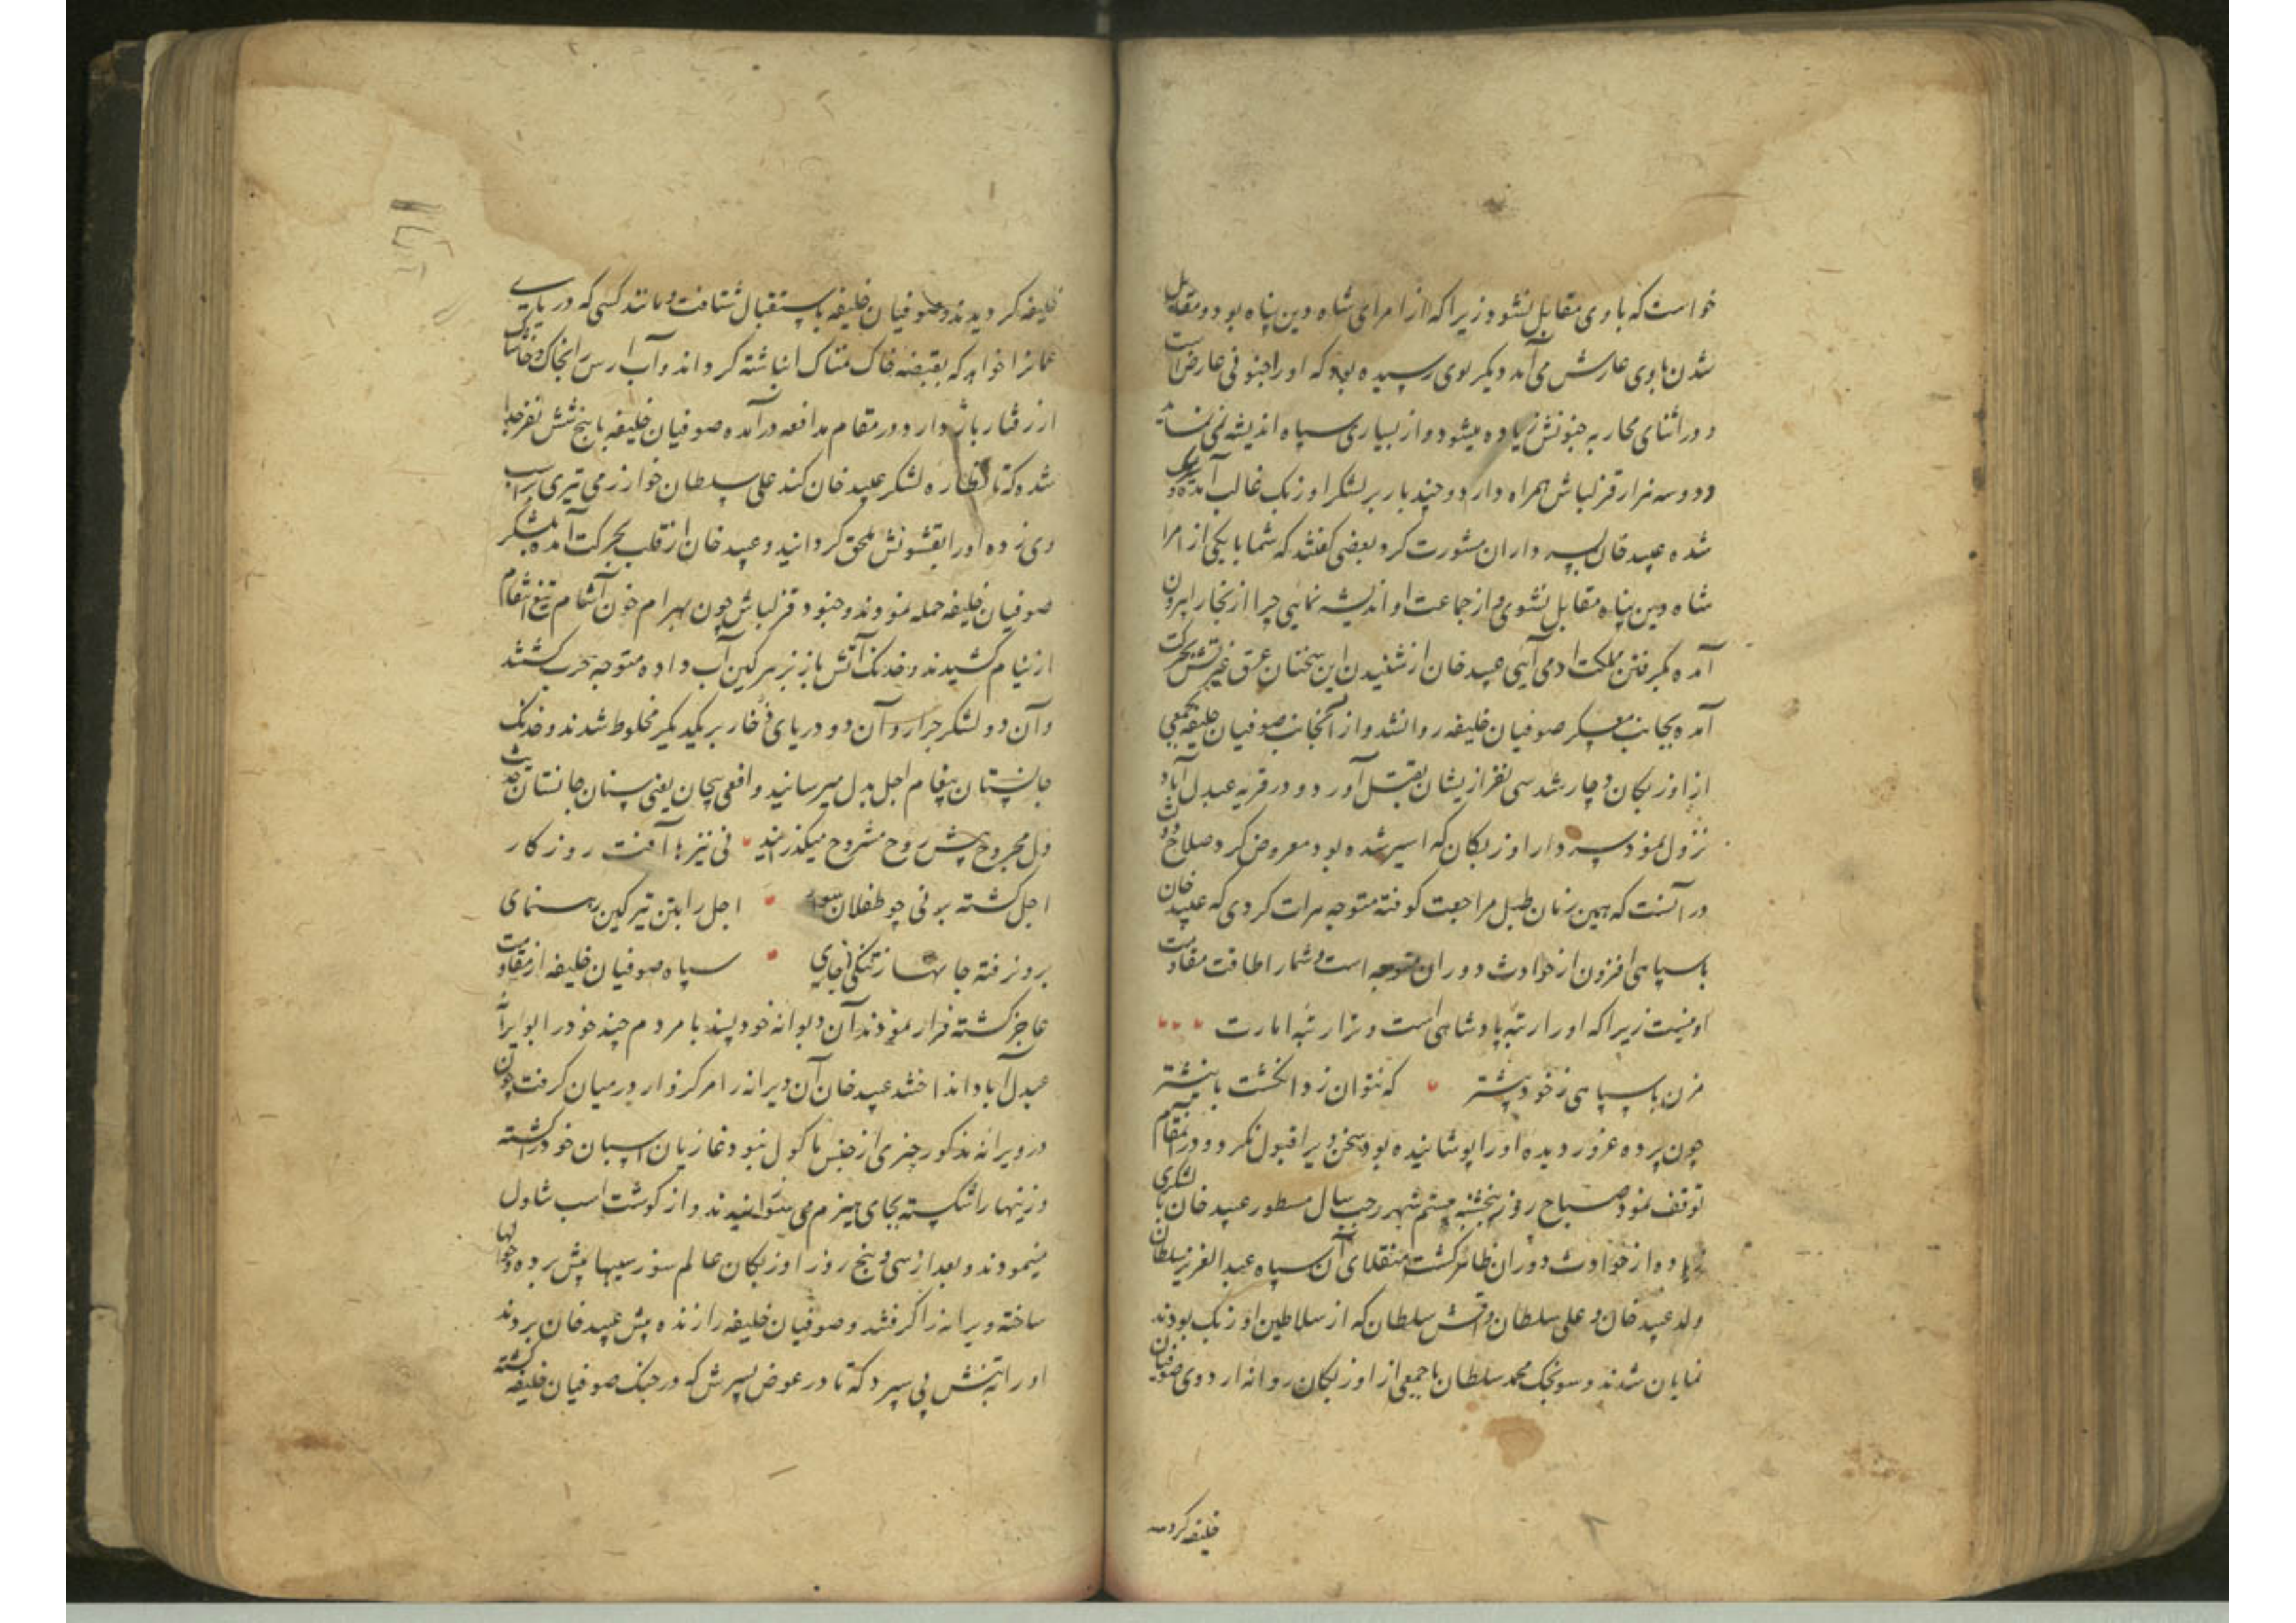 خواست که با وی مقابل نشود زیرا که از امرای شاه دین پناه بود و مقابل
شدن با وی عارش می آمد دیگر بوی رسیده بود که او را جنونی عارض است
و در اثنای محاربه جنونش زیاده میشود و از بسیاری سپاه اندیشه نمی نماید
و دو سه هزار قزلباش همراه دارد و چند بار بر لشکر اوزبک غالب آمده
شده عبید خان بسرداران مشورت کرد بعضی گفتند که شما با یکی از امرا
شاه دین پناه مقابل نشوی و از جماعت او اندیشه نمایی چرا از بخارا بیرون
آمده بگرفتن مملکت او می آیی عبید خان از شنیدن این سخنان عرق غیرتش بحرکت
آمده بجانب معسکر صوفیان خلیفه روانشد و از آنجانب صوفیان خلیفه بجمعی
از اوزبکان دچار شد سی نفر ازیشان بقتل آورد و در قریه عبدل آباد
نزول نمود سردار اوزبکان که اسیر شده بود معروض کرد صلاح دولت
در آنست که همین زمان طبل مراجعت کوفته متوجه هرات کردی که عبید خان
با سپاهی افزون از حوادث دوران متوجه است و شما را طاقت مقاومت
او نیست زیرا که او را رتبه پادشاهی است و ترا رتبه امارت
مزن با سپاهی ز خود بیشتر که نتوان زد انگشت با نیشتر
چون پرده غرور دیده او را پوشانیده بود سخن ویرا قبول نکرد و در آنمقام
توقف نمود صباح روز پنجشنبه هشتم شهر رجب سال مسطور عبید خان با لشکری
زیاده از حوادث دوران ظاهر گشت منقلای آن سپاه عبد العزیز سلطان
ولد عبید خان و علی سلطان و سلطان که از سلاطین اوزبک بودند
نمایان شدند و سونجک محمد سلطان با جمعی از اوزبکان روانه اردوی صوفیان
خلیفه کردید
خلیفه کردیدند و صوفیان خلیفه باستقبال شتافت و مانند کسی که دریای
عمانرا خواهد که بقبضه خاک نمناک انباشته کرداند و آب ارس را بخاک و خاشاک
از رفتار باز دارد در مقام مدافعه درآمده صوفیان خلیفه با پنج شش نفر جدا
شده که تا نظاره لشکر عبید خان کند علی سلطان خوارزمی تیری بر اسب
وی زده او را بقشونش ملحق کردانید و عبید خان از قلب بحرکت آمده بلشکر
صوفیان خلیفه حمله نمودند و جنود قزلباش چون بهرام خون آشام تیغ انتقام
از نیام کشیدند و خدنک آتش بار بزهر کین آب داده متوجه حرب کشتند
و آن دو لشکر جرار و آن دو دریای زخار بر یکدیکر مخلوط شدند و خدنک
جانستان پیغام اجل بدل میرسانید و افعی پیچان یعنی سنان جانستان حدیث
دل مجروح پیش روح مشروح میکذرانید نی نیزها آفت روزکار
اجل کشته بر نی چو طفلان سوار اجل را بتن تیر کین رهنمای
برون رفته جانها ز تنکی جای سپاه صوفیان خلیفه از مقاومت
عاجز کشته فرار نمودند آن دیوانه خود پسند با مردم چند خود را بویرانه
عبدل آباد انداختند عبید خان آن ویرانه را مرکزوار در میان کرفت چون
در ویرانه مذکور چیزی از جنس ماکول نبود غازیان اسبان خود را کشته
و زینها را شکسته بجای هیزم می و از کوشت اسب تناول
مینمودند و بعد از سی و پنج روز اوزبکان عالم سوز سیبها پیش برده و جوالها
ساخته ویرانه را کرفتند و صوفیان خلیفه را زنده پیش عبید خان بردند
او را بتنش بی سپرد که تا در عوض پسرش که در جنک صوفیان خلیفه کشته